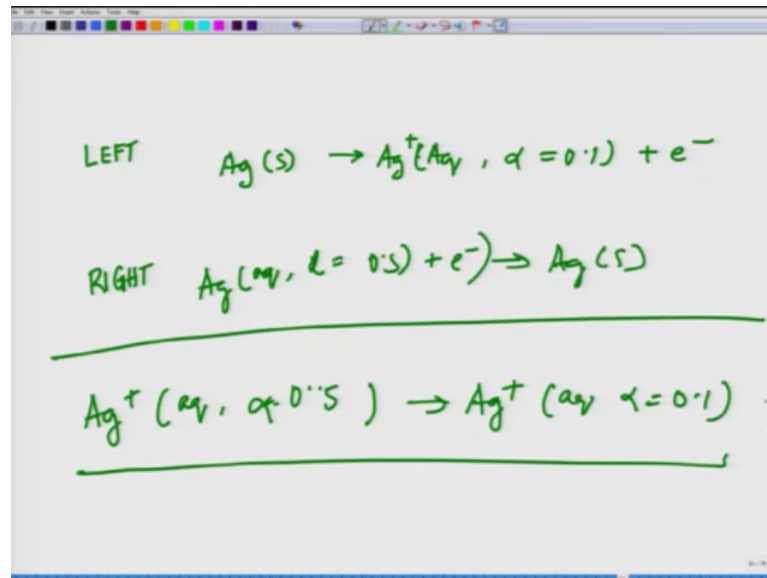 LEFT Ag (s) → Ag⁺(Aq, α = 0.1) + e⁻
RIGHT Ag (aq, α = 0.5) + e⁻) → Ag (s)
Ag⁺ (aq, α = 0.5) → Ag⁺ (aq α = 0.1)